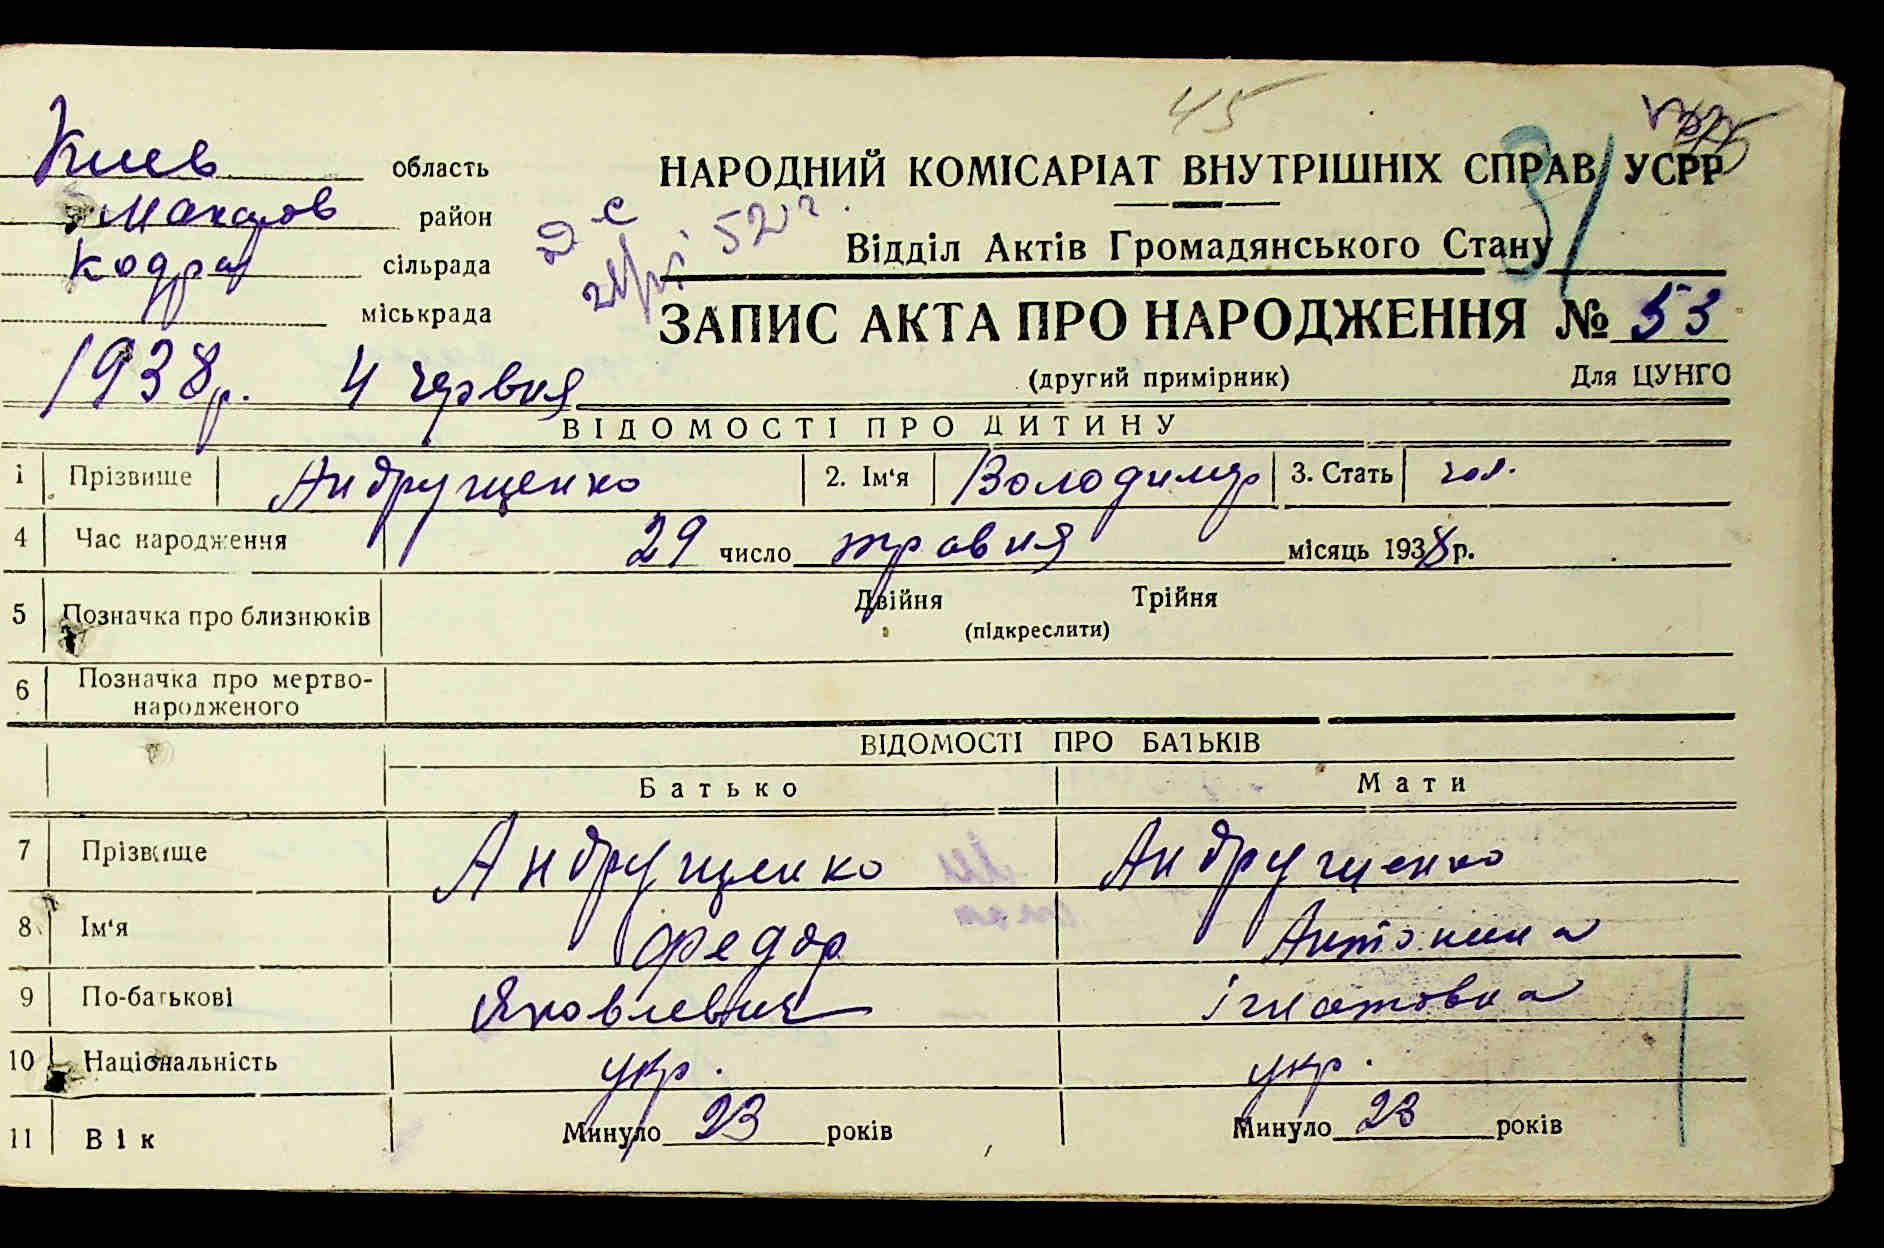 45
Киев область
Макаров район
Кодра сільрада
міськрада
1938р. 4 червня
НАРОДНИЙ КОМІСАРІАТ ВНУТРІШНІХ СПРАВ УСРР
31
Відділ Актів Громадянського Стану
ЗАПИС АКТА ПРО НАРОДЖЕННЯ № 53
(другий примірник) Для ЦУНГО
ВІДОМОСТІ ПРО ДИТИНУ
1 Прізвище Андрущенко 2. Ім'я Володимир 3. Стать чол.
4 Час народження 29 число травня місяць 1938р.
5 Позначка про близнюків Двійня Трійня
(підкреслити)
6 Позначка про мертво-
народженого
ВІДОМОСТІ ПРО БАТЬКІВ
Батько Мати
7 Прізвище Андрущенко Андрущенко
8 Ім'я Федор Антонина
9 По-батькові Яковлевич Ігнатовна
10 Національність укр. укр.
11 Вік Минуло 23 років Минуло 23 років